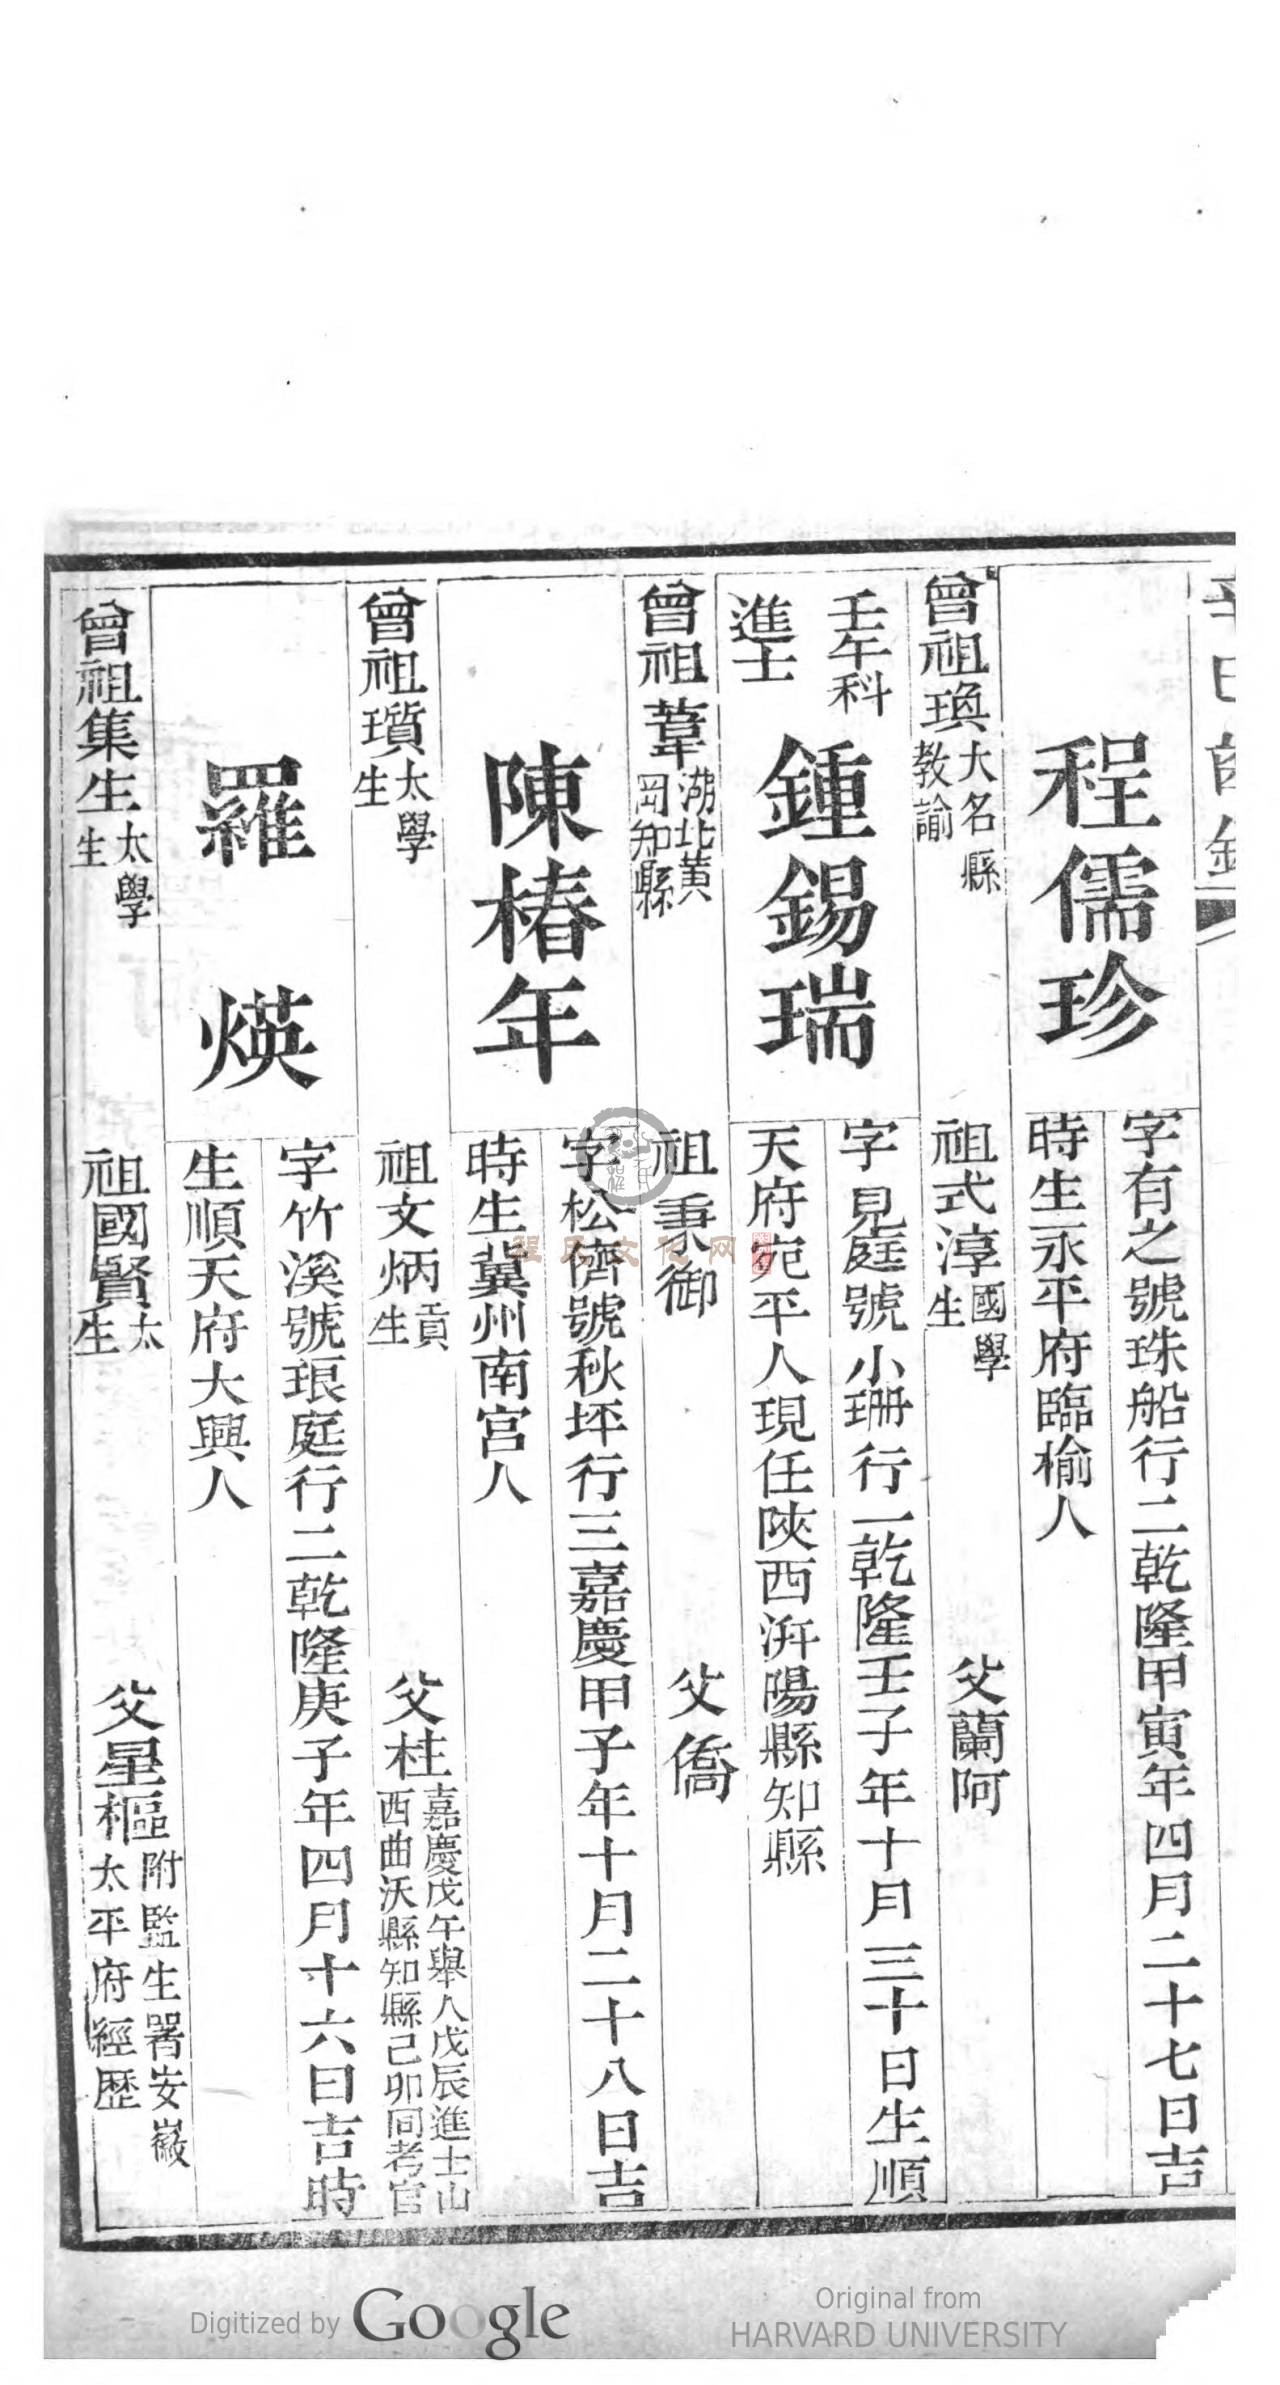 程儒珍
字有之號珠船行二乾隆甲寅年四月二十七日吉
時生永平府臨榆人
曾祖瑍大名縣教諭
祖式淳國學生
父蘭阿
壬午科
進士
鍾錫瑞
字見庭號小珊行一乾隆壬子年十月三十日生順
天府宛平人現任陝西汧陽縣知縣
曾祖葦湖北黃岡知縣
祖秉御
父僑
陳椿年
字松儕號秋坪行三嘉慶甲子年十月二十八日吉
時生冀州南宮人
曾祖瓆太學生
祖文炳貢生
父柱嘉慶戊午舉人戊辰進士山西曲沃縣知縣己卯同考官
羅煐
字竹溪號琅庭行二乾隆庚子年四月十六日吉時
生順天府大興人
曾祖集生太學生
祖國賢太生
父星樞附監生署安徽太平府經歷
程氏文化网
Digitized by Google
Original from
HARVARD UNIVERSITY